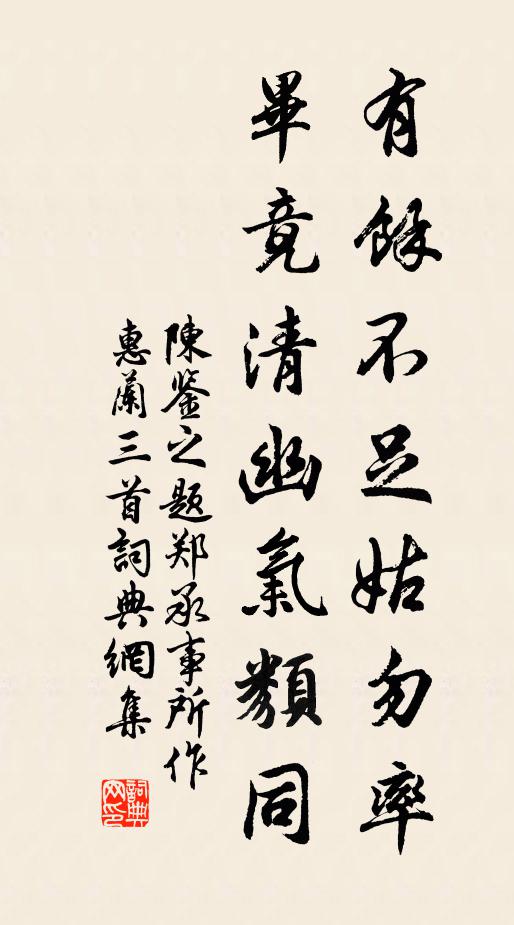 有餘不足姑勿率
畢竟清幽氣類同
陳鉴之题郑承事所作
惠蘭三首詞典網集
詞典
网印